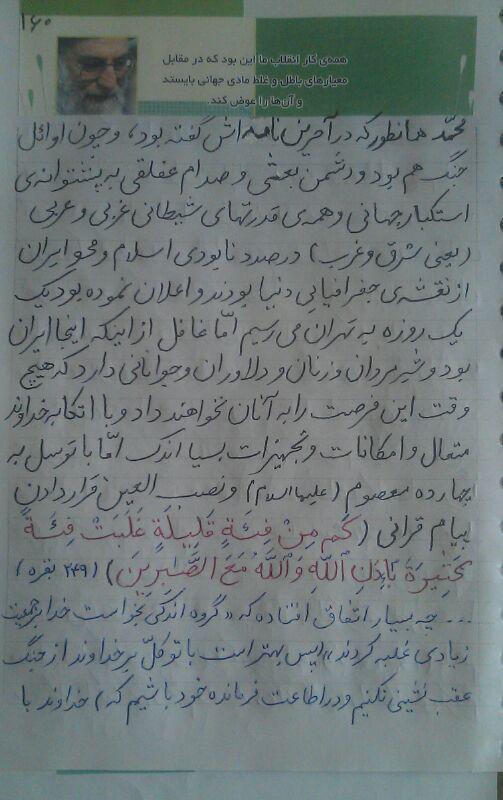 ۱۶۰
همه‌ی کار انقلاب ما این بود که در مقابل
معیارهای باطل و غلط مادی جهانی بایستد
و آن‌ها را عوض کند.
محمّد همانطور که در آخرین نامه اش گفته بود، و چون اوائل
جنگ هم بود و دشمن بعثی و صدام عفلقی به پشتوانه‌ی
استکبار جهانی و همه‌ی قدرتهای شیطانی غربی و عربی
(یعنی شرق و غرب) درصدد نابودی اسلام و محو ایران
از نقشه‌ی جغرافیایی دنیا بودند و اعلان نموده بود یک
یک روزه به تهران می رسیم امّا غافل از اینکه اینجا ایران
بود و شیرمردان و زنان و دلاوران و جوانانی دارد که هیچ
وقت این فرصت را به آنان نخواهند داد و با اتکا بر خداوند
متعال و امکانات و تجهیزات بسیا اندک امّا با توسل به
چهارده معصوم (علیها السلام) و نصب العین قرار دادن
پیام قرآنی (کَم مِنْ فِئَةٍ قَلِیلَةٍ غَلَبَتْ فِئَةً
کَثِیرَةً بِإِذنِ ٱللَّهِ وَ ٱللَّهُ مَعَ ٱلصَّـٰبِرِینَ) (۲۴۹ بقره)
.... چه بسیار اتفاق افتاده که «گروه اندکی بخواست خدا بر جمعیت
زیادی غلبه کردند» (پس بهتر است با توکلّ بر خداوند از جنگ
عقب نشینی نکنیم و در اطاعت فرمانده خود باشیم که) خداوند با